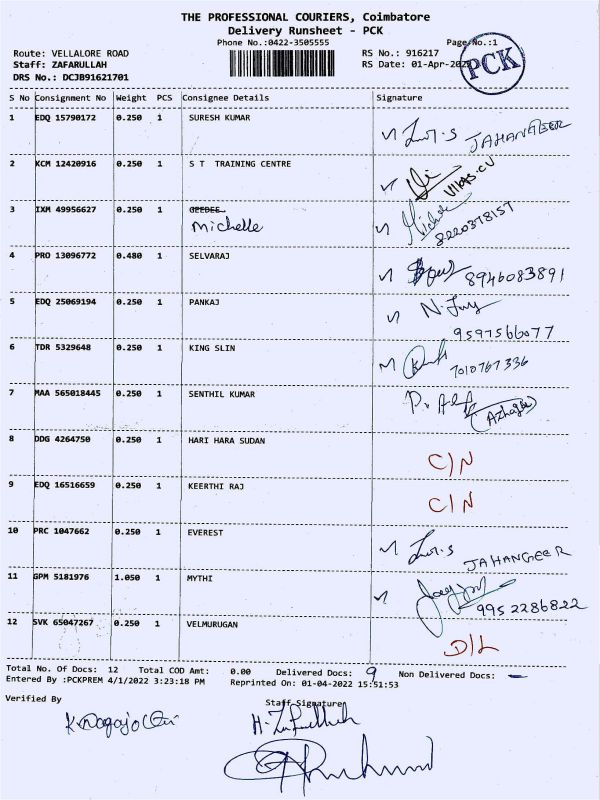 THE PROFESSIONAL COURIERS, Coimbatore
Delivery Runsheet - PCK
Phone No.:0422-3505555 Page No.:1
Route: VELLALORE ROAD RS No.: 916217
Staff: ZAFARULLAH RS Date: 01-Apr-2022
PCK
DRS No.: DCJB91621701
S No Consignment No Weight PCS Consignee Details Signature
1 EDQ 15790172 0.250 1 SURESH KUMAR
JAHANGEER
2 KCM 12420916 0.250 1 S T TRAINING CENTRE
3 IXM 49956627 0.250 1 GEEDEE
Michelle
8220378157
4 PRO 13096772 0.480 1 SELVARAJ 8946083891
5 EDQ 25069194 0.250 1 PANKAJ
9597566077
6 TDR 5329648 0.250 1 KING SLIN
7010767336
7 MAA 565018445 0.250 1 SENTHIL KUMAR
8 DDG 4264750 0.250 1 HARI HARA SUDAN
C/N
9 EDQ 16516659 0.250 1 KEERTHI RAJ
C/N
10 PRC 1047662 0.250 1 EVEREST
JAHANGEER
11 GPM 5181976 1.050 1 MYTHI
9952286822
12 SVK 65047267 0.250 1 VELMURUGAN
D/L
Total No. Of Docs: 12 Total COD Amt: 0.00 Delivered Docs: 9 Non Delivered Docs: -
Entered By :PCKPREM 4/1/2022 3:23:18 PM Reprinted On: 01-04-2022 15:51:53
Verified By Staff Signature